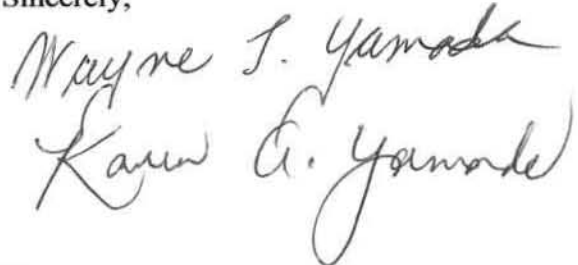 Sincerely,
Wayne T. Yamada
Karen A. Yamada